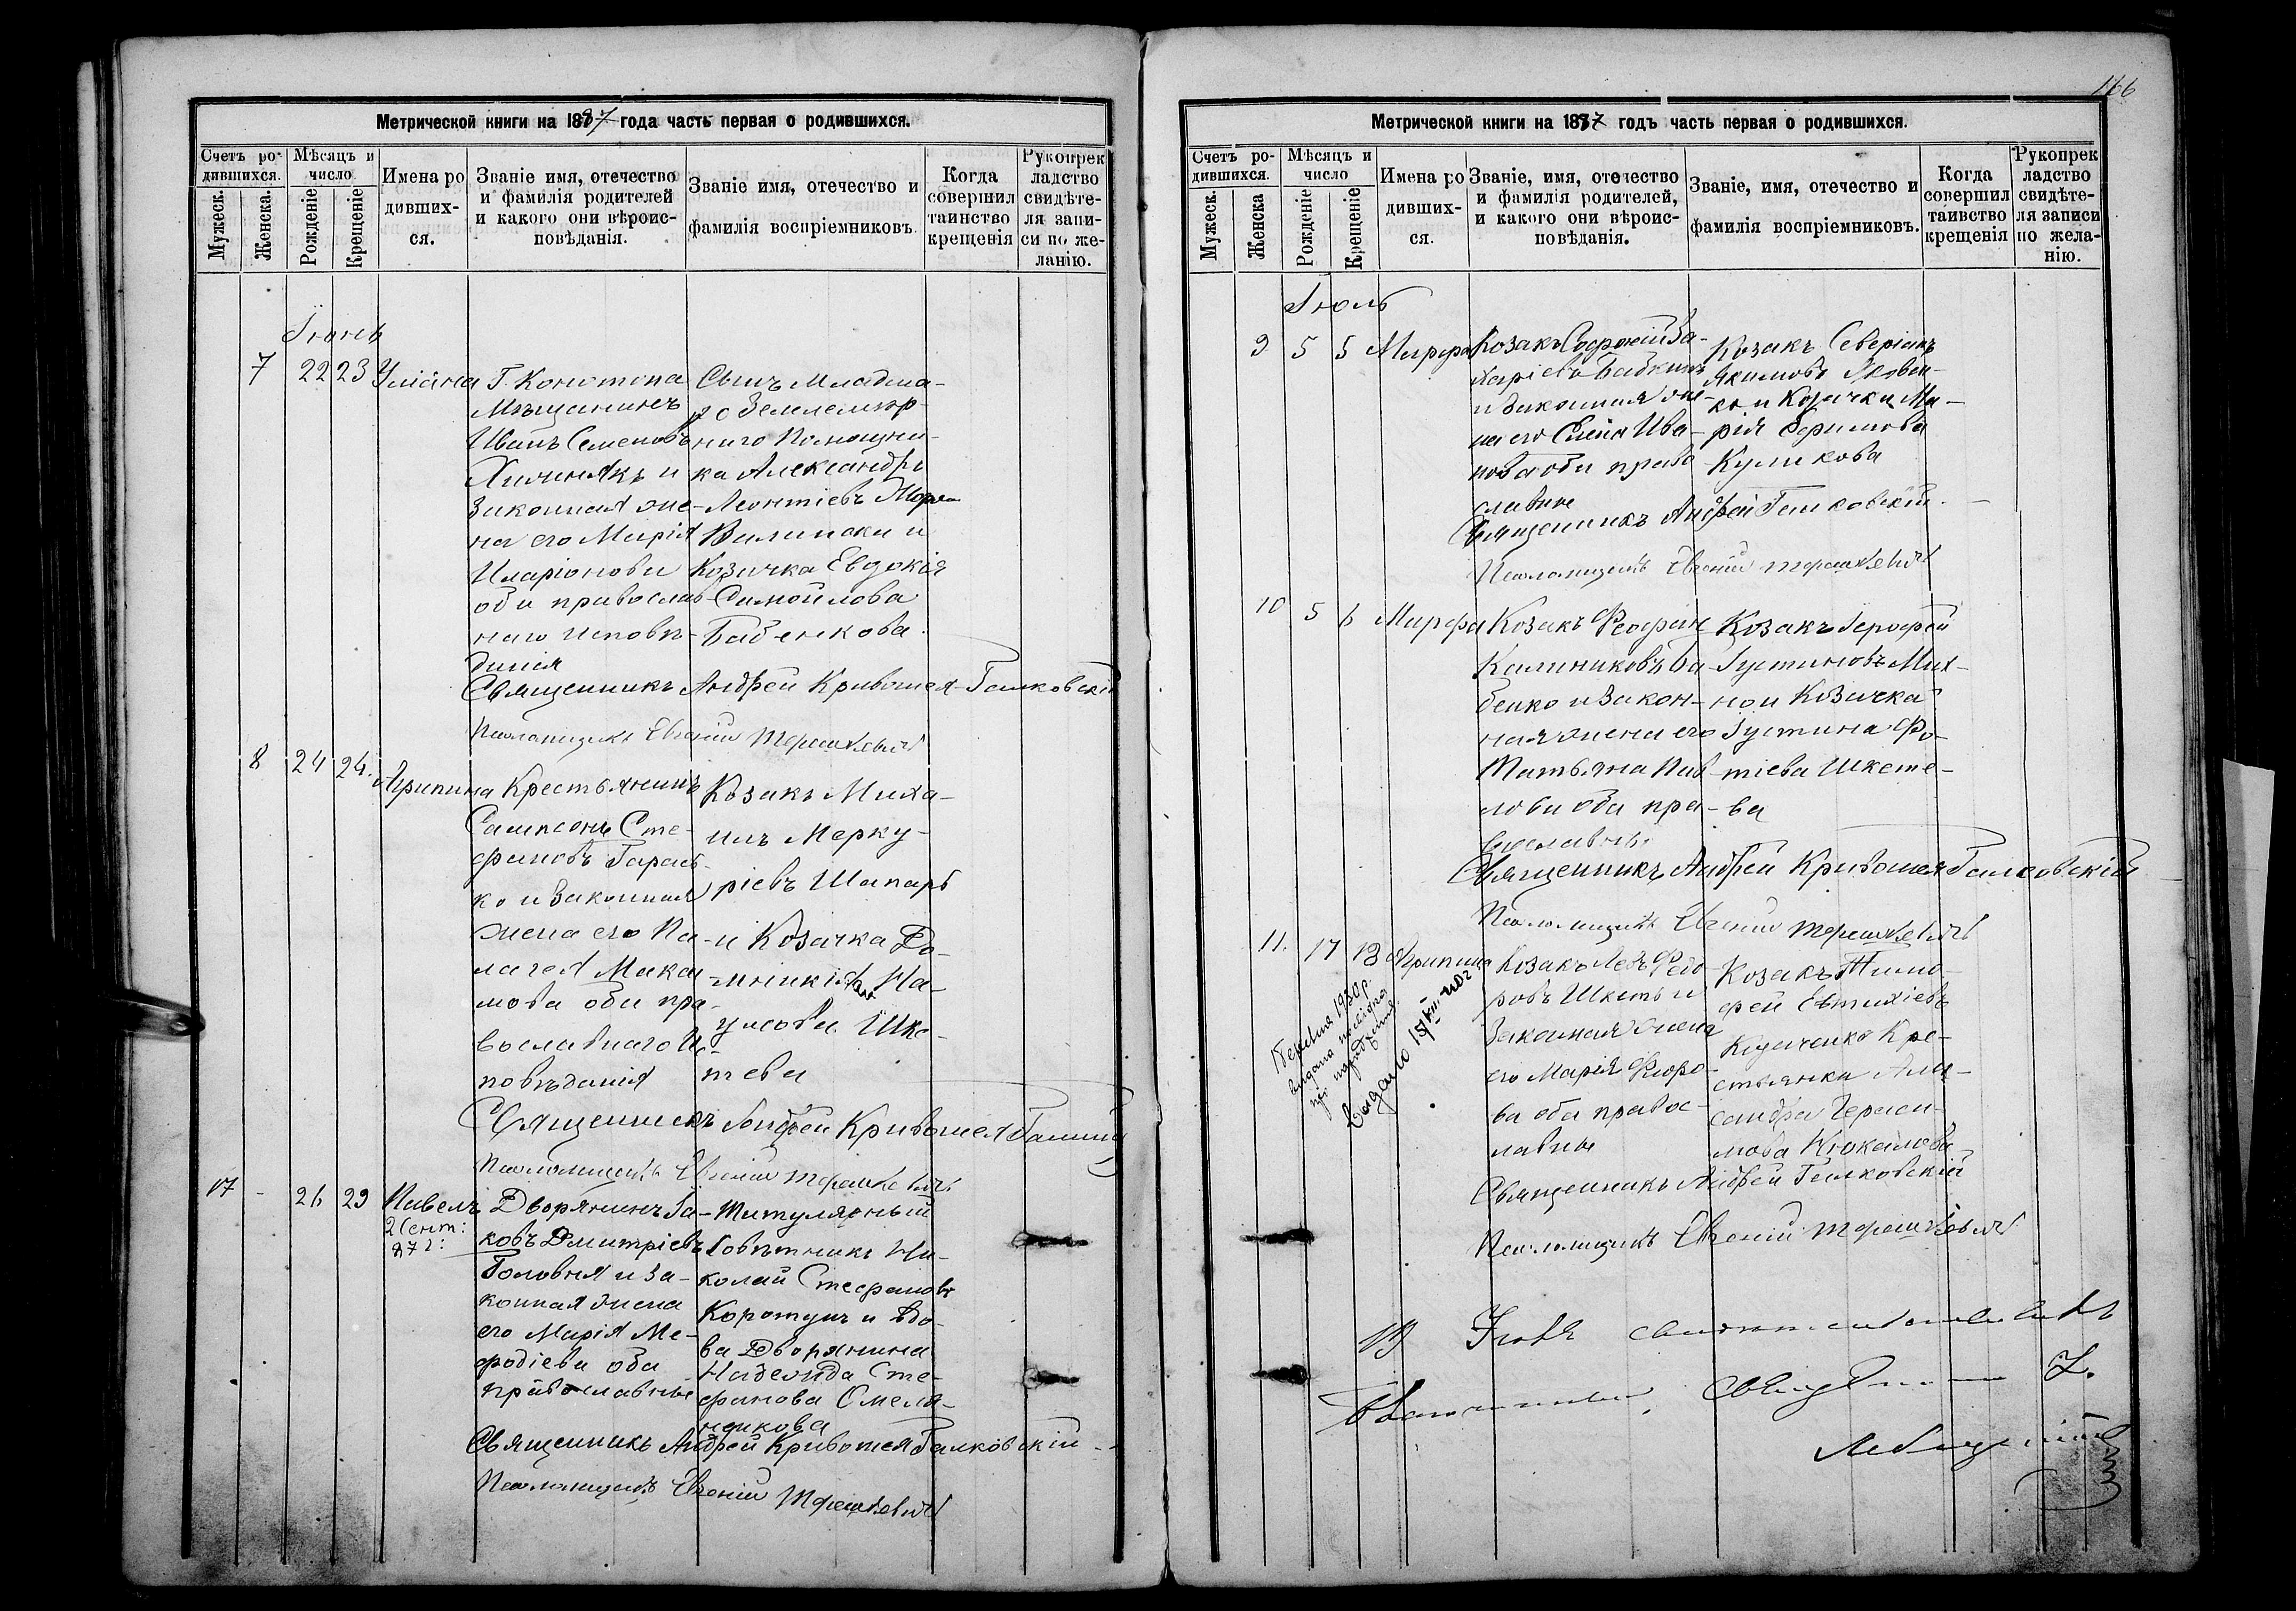 166
Метрической книги на 1887 года часть первая о родившихся.
Счетъ ро-
дившихся.
Мужеск.
Женска.
Мѣсяцъ и
число
Рожденіе
Крещеніе
Имена ро
дивших-
ся.
Званіе имя, отечество
и фамилія родителей
и какого они вѣроис-
повѣданія.
Званіе имя, отечество и
фамилія воспріемниковъ.
Когда
совершил
таинство
крещенія
Рукоприк
ладство
свидѣте-
ля запи-
си по же-
ланію.
Іюнь
7 22 23 Уліана
Г. Конотопа
Мѣщанинъ
Иванъ Семеновъ
и
Законная же-
на его Марія
Иларіонова
оба православ-
наго исповѣ-
данія
Сынъ Младша-
го Землемѣр-
наго Помощни-
ка Александръ
Леонтіевъ
и
Козачка Евдокія
Самойлова
Бабенкова.
Священникъ Андрей Кривошея-Галковскій
Псаломщикъ Евгеній Терешкевичъ
8 24 24. Агрипина
Крестьянинъ
Сампсонъ Сте-
фановъ Гарась-
ко и Законная
жена его Па-
лагея Мака
мова оба пра-
вославнаго Ис-
повѣданія
Козакъ Миха-
илъ Мерку-
ріевъ Шапарь
и Козачка До-
мникія На-
умова Шке-
тева
Священникъ Андрей Кривошея
Псаломщикъ Евгеній Терешкевичъ
17 - 26 29 Павелъ
2 Сент:
87 г:
Дворянинъ Іа-
ковъ Дмитріевъ
Головня и За-
конная жена
его Марія Ме-
фодіева оба
православные
Титулярный
Совѣтникъ Ни-
колай Стефановъ
Коротун и вдо-
ва Дворянина
Надежда Сте-
фанова Омелья-
ненкова
Священникъ Андрей Кривошея Галковскій
Псаломщикъ Евгеній Терешкевичъ
Метрической книги на 1887 годъ часть первая о родившихся.
Счетъ ро-
дившихся.
Мужеск.
Женска
Мѣсяцъ и
число
Рожденіе
Крещеніе
Имена ро
дивших-
ся.
Званіе, имя, отечество
и фамилія родителей,
и какого они вѣроис-
повѣданія.
Званіе, имя, отечество и
фамилія воспріемниковъ.
Когда
совершил
таивство
крещенія
Рукоприк
ладство
свидѣте-
ля записи
по жела-
нію.
Іюль
9 5 5 Марфа
Козакъ Софроній За-
харіевъ Бабкинъ
и законная же-
на его Елена Ива-
нова оба право
славные
Козакъ Северіанъ
Якимовъ Яковен-
ко и Козачка Ма-
рія Ефимова
Куликова
Священникъ Андрей Галковскій
Псаломщикъ Евгеній Терешкевичъ
10 5 6 Марфа
Козакъ Феофанъ
Калиниковъ Ба-
бенко и Закон-
ная жена его
Татьяна Пав-
лова оба пра-
вославные
Козакъ Іерофей
Іустиновъ Мих-
но и Козачка
Іустина Фо-
тіева Шкете-
ва
Священникъ Андрей Кривошея Галковскій
Псаломщикъ Евгеній Терешкевичъ
11. 17 18 Агрипина
Козакъ Левъ Федо-
ровъ Шкеть и
Законная жена
его Марія
ва оба правос-
лавные
Козакъ Тимо-
фей Евтихіевъ
Козаченко Кре-
стьянка Алек-
сандра Гераси-
мова
Священникъ Андрей Галковскій
Псаломщикъ Евгеній Терешкевичъ